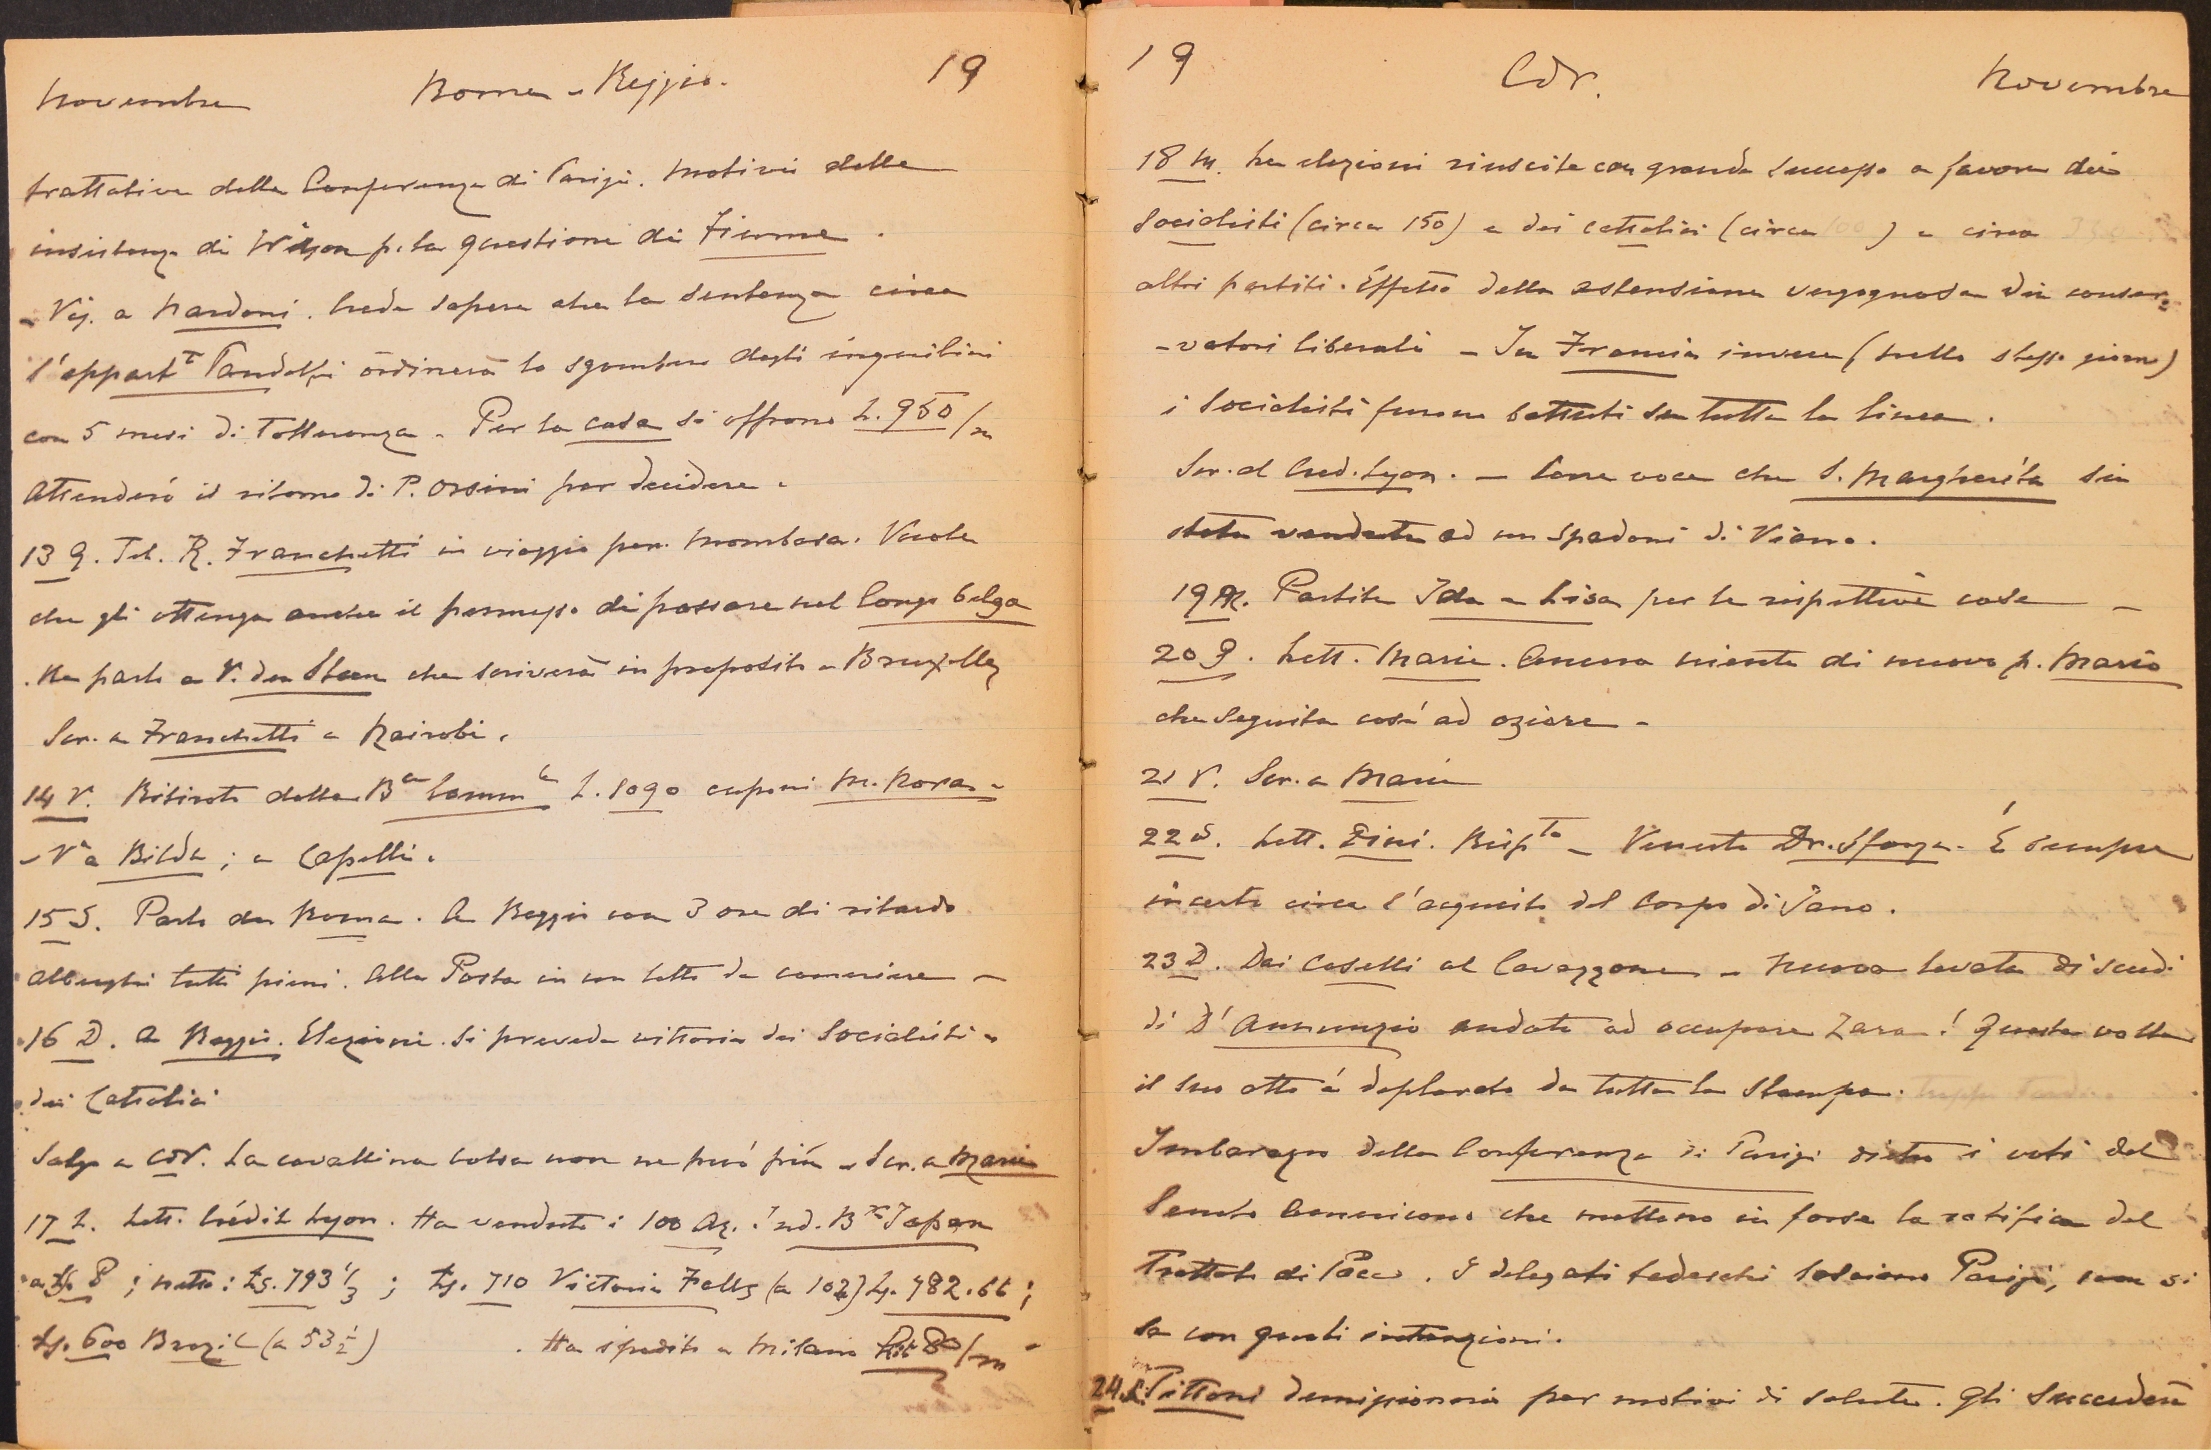 Novembre Roma - Reggio. 19
trattative della Conferenza di Parigi. Motivi della
insistenza di Wilson p. la questione di Fiume.
- Vis. a Nardoni. Crede sapere che la sentenza circa
l'appartt Pandolfi ordinerà lo sgombero degli inquilini
con 5 mesi di tolleranza. Per la casa si offrono L. 950/m
Attenderó il ritorno di P. Orsini per decidere.
13 G. Tel. R. Franchetti in viaggio per Mombasa. Vuole
che gli ottenga anche il permesso di passare nel Congo belga
. Ne parlo a V. den Steen che scriverà in proposito a Bruxelles
Scr. a Franchetti a Nairobi.
14 V. Ritirato dalla Bca Commle L. 1090 cuponi M. Nova -
- Va Bilda; a Capelli.
15 S. Parto da Roma. A Reggio con 3 ore di ritardo
Alberghi tutti pieni. Alla Posta in un letto da cameriere -
16 D. A Reggio. Elezioni. Si prevede vittoria dei Socialisti e
dei Cattolici
Salgo a CdV. La cavallina bolsa non ne può più - Scr. a Maria
17 L. Lett. Crédit Lyon. Ha venduto i 100 Az. Ind. Bk Japan
a Ls. 8; netto: Ls. 793 1/3; Ls. 710 Victoria Falls (a 102) Ls. 782.66;
Ls. 600 Brazil (a 53 1/2) . Ha spedito a Milano Lit 80/m
19 CdV. Novembre
18 M. Le elezioni riuscite con grande successo a favore dei
Socialisti (circa 150) e dei cattolici (circa 100) e circa 350
altri partiti. Effetto della astensione vergognosa dei conser-
-vatori liberali - In Francia invece (nello stesso giorno)
i Socialisti furono battuti su tutta la linea.
Scr. al Cred. Lyon. - Corre voce che S. Margherita sia
stata venduta ad un Spadoni di Viano.
19 M. Partite Ida e Lisa per le rispettive case -
20 G. Lett. Maria. Ancora niente di nuovo p. Mario
che seguita cosí ad oziare -
21 V. Scr. a Maria
22 S. Lett. Fini. Rispto - Venuto Dr. Sforza. É sempre
incerto circa l'acquisto del Corpo di Sano.
23 D. Dai Caselli al Cavazzone - Nuova levata di scudi
di D'Annunzio andato ad occupare Zara! Questa volta
il suo atto é deplorato da tutta la Stampa.
Imbarazzo della Conferenza di Parigi dietro i voti del
Senato Americano che mettono in forse la ratifica del
Trattato di Pace. I delegati tedeschi lasciano Parigi, non si
sa con quali intenzioni.
24 L. Tittoni demissionario per motivi di salute. Gli succederà